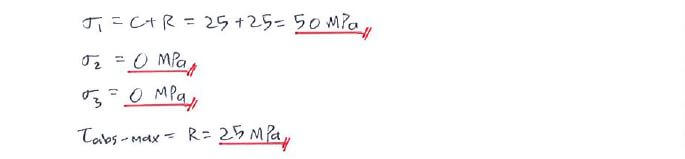 σ₁ = C+R = 25+25 = 50 MPa
σ₂ = 0 MPa
σ₃ = 0 MPa
τabs-max = R = 25 MPa